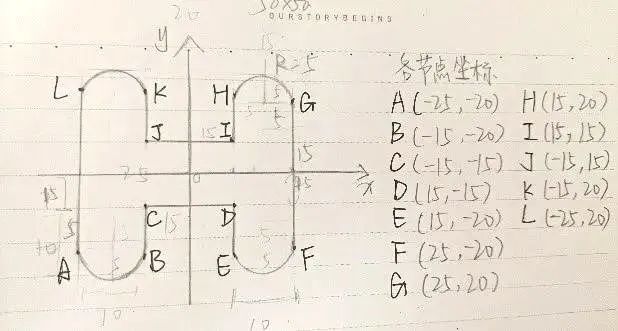 50x50
OURSTORYBEGINS
20
y
15
R=5
各节点坐标
L K H G
A(-25,-20) H(15,20)
B(-15,-20) I(15,15)
J 15 I
C(-15,-15) J(-15,15)
15
25 0 x
D(15,-15) K(-15,20)
15
C 15 D
E(15,-20) L(-25,20)
5
F(25,-20)
A B E F
5 5
G(25,20)
10 10